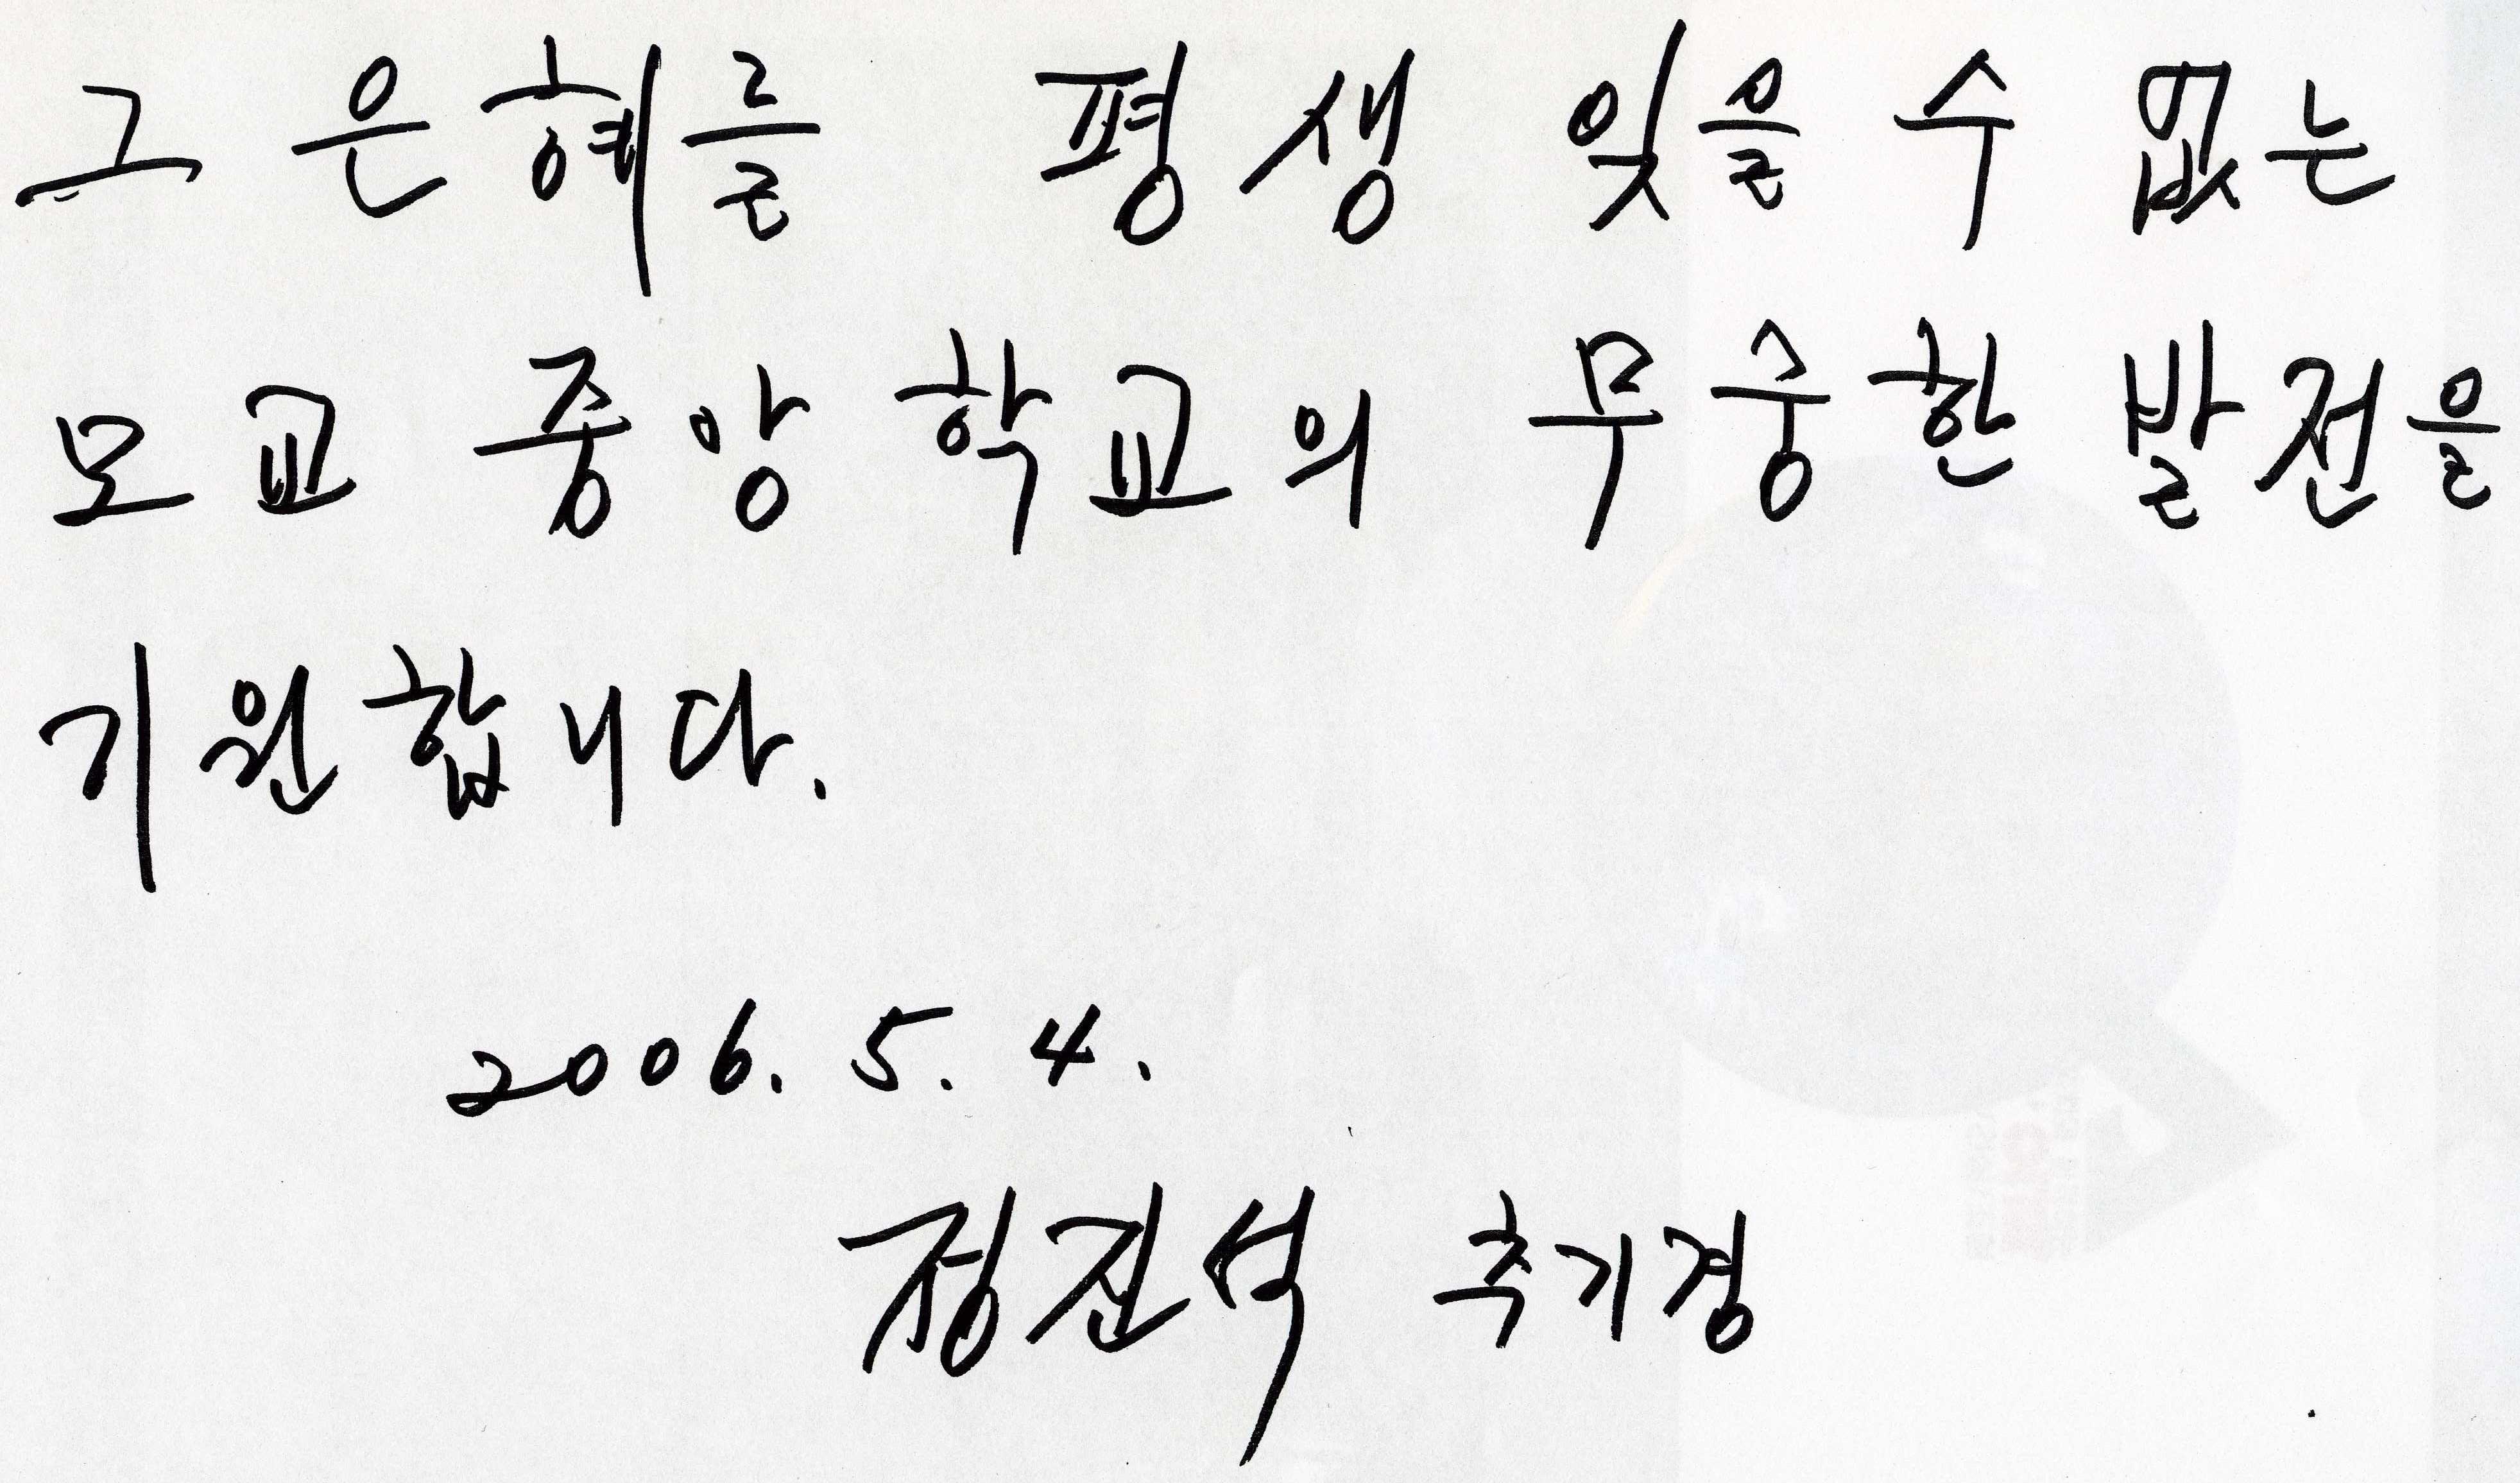 그 은혜를 평생 잊을 수 없는
모교 중앙학교의 무궁한 발전을
기원합니다.
2006. 5. 4.
정진석 추기경